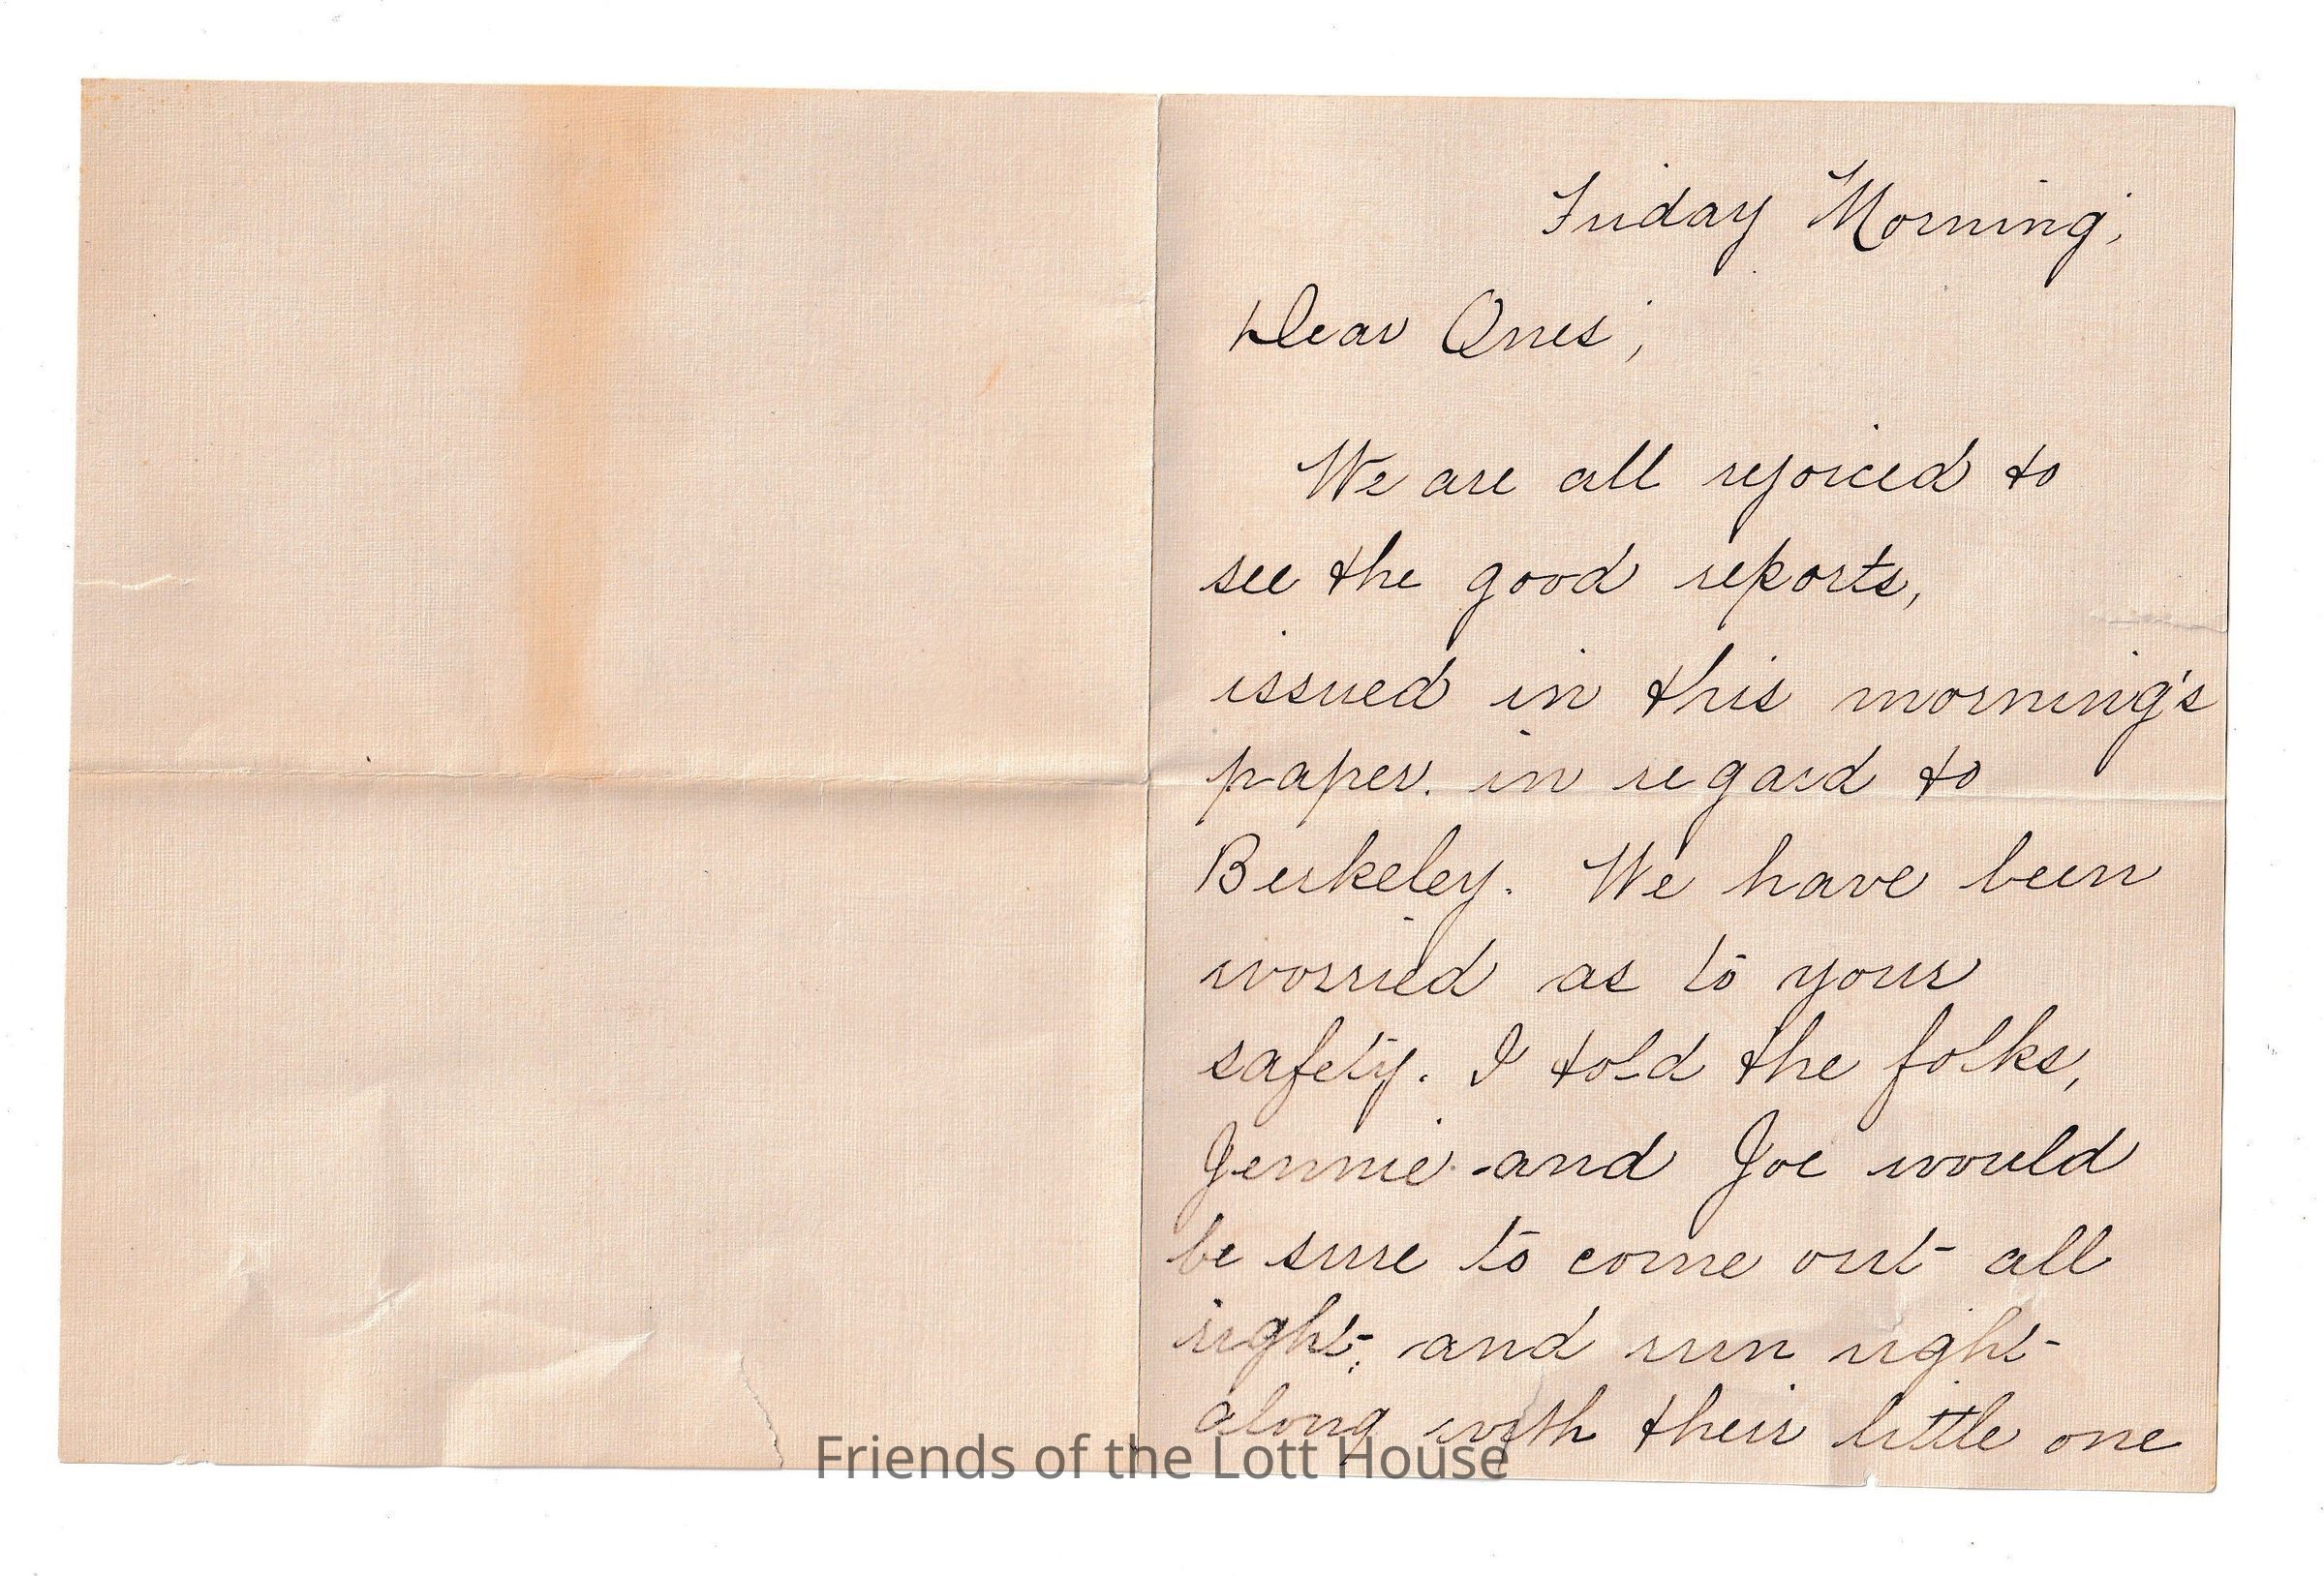 Friday Morning,
Dear Ones,
We are all rejoiced to
see the good reports,
issued in this morning's
paper. in regard to
Berkeley. We have been
worried as to your
safety. I told the folks,
Jennie and Joe would
be sure to come out all
right, and run right
along with their little one
Friends of the Lott House